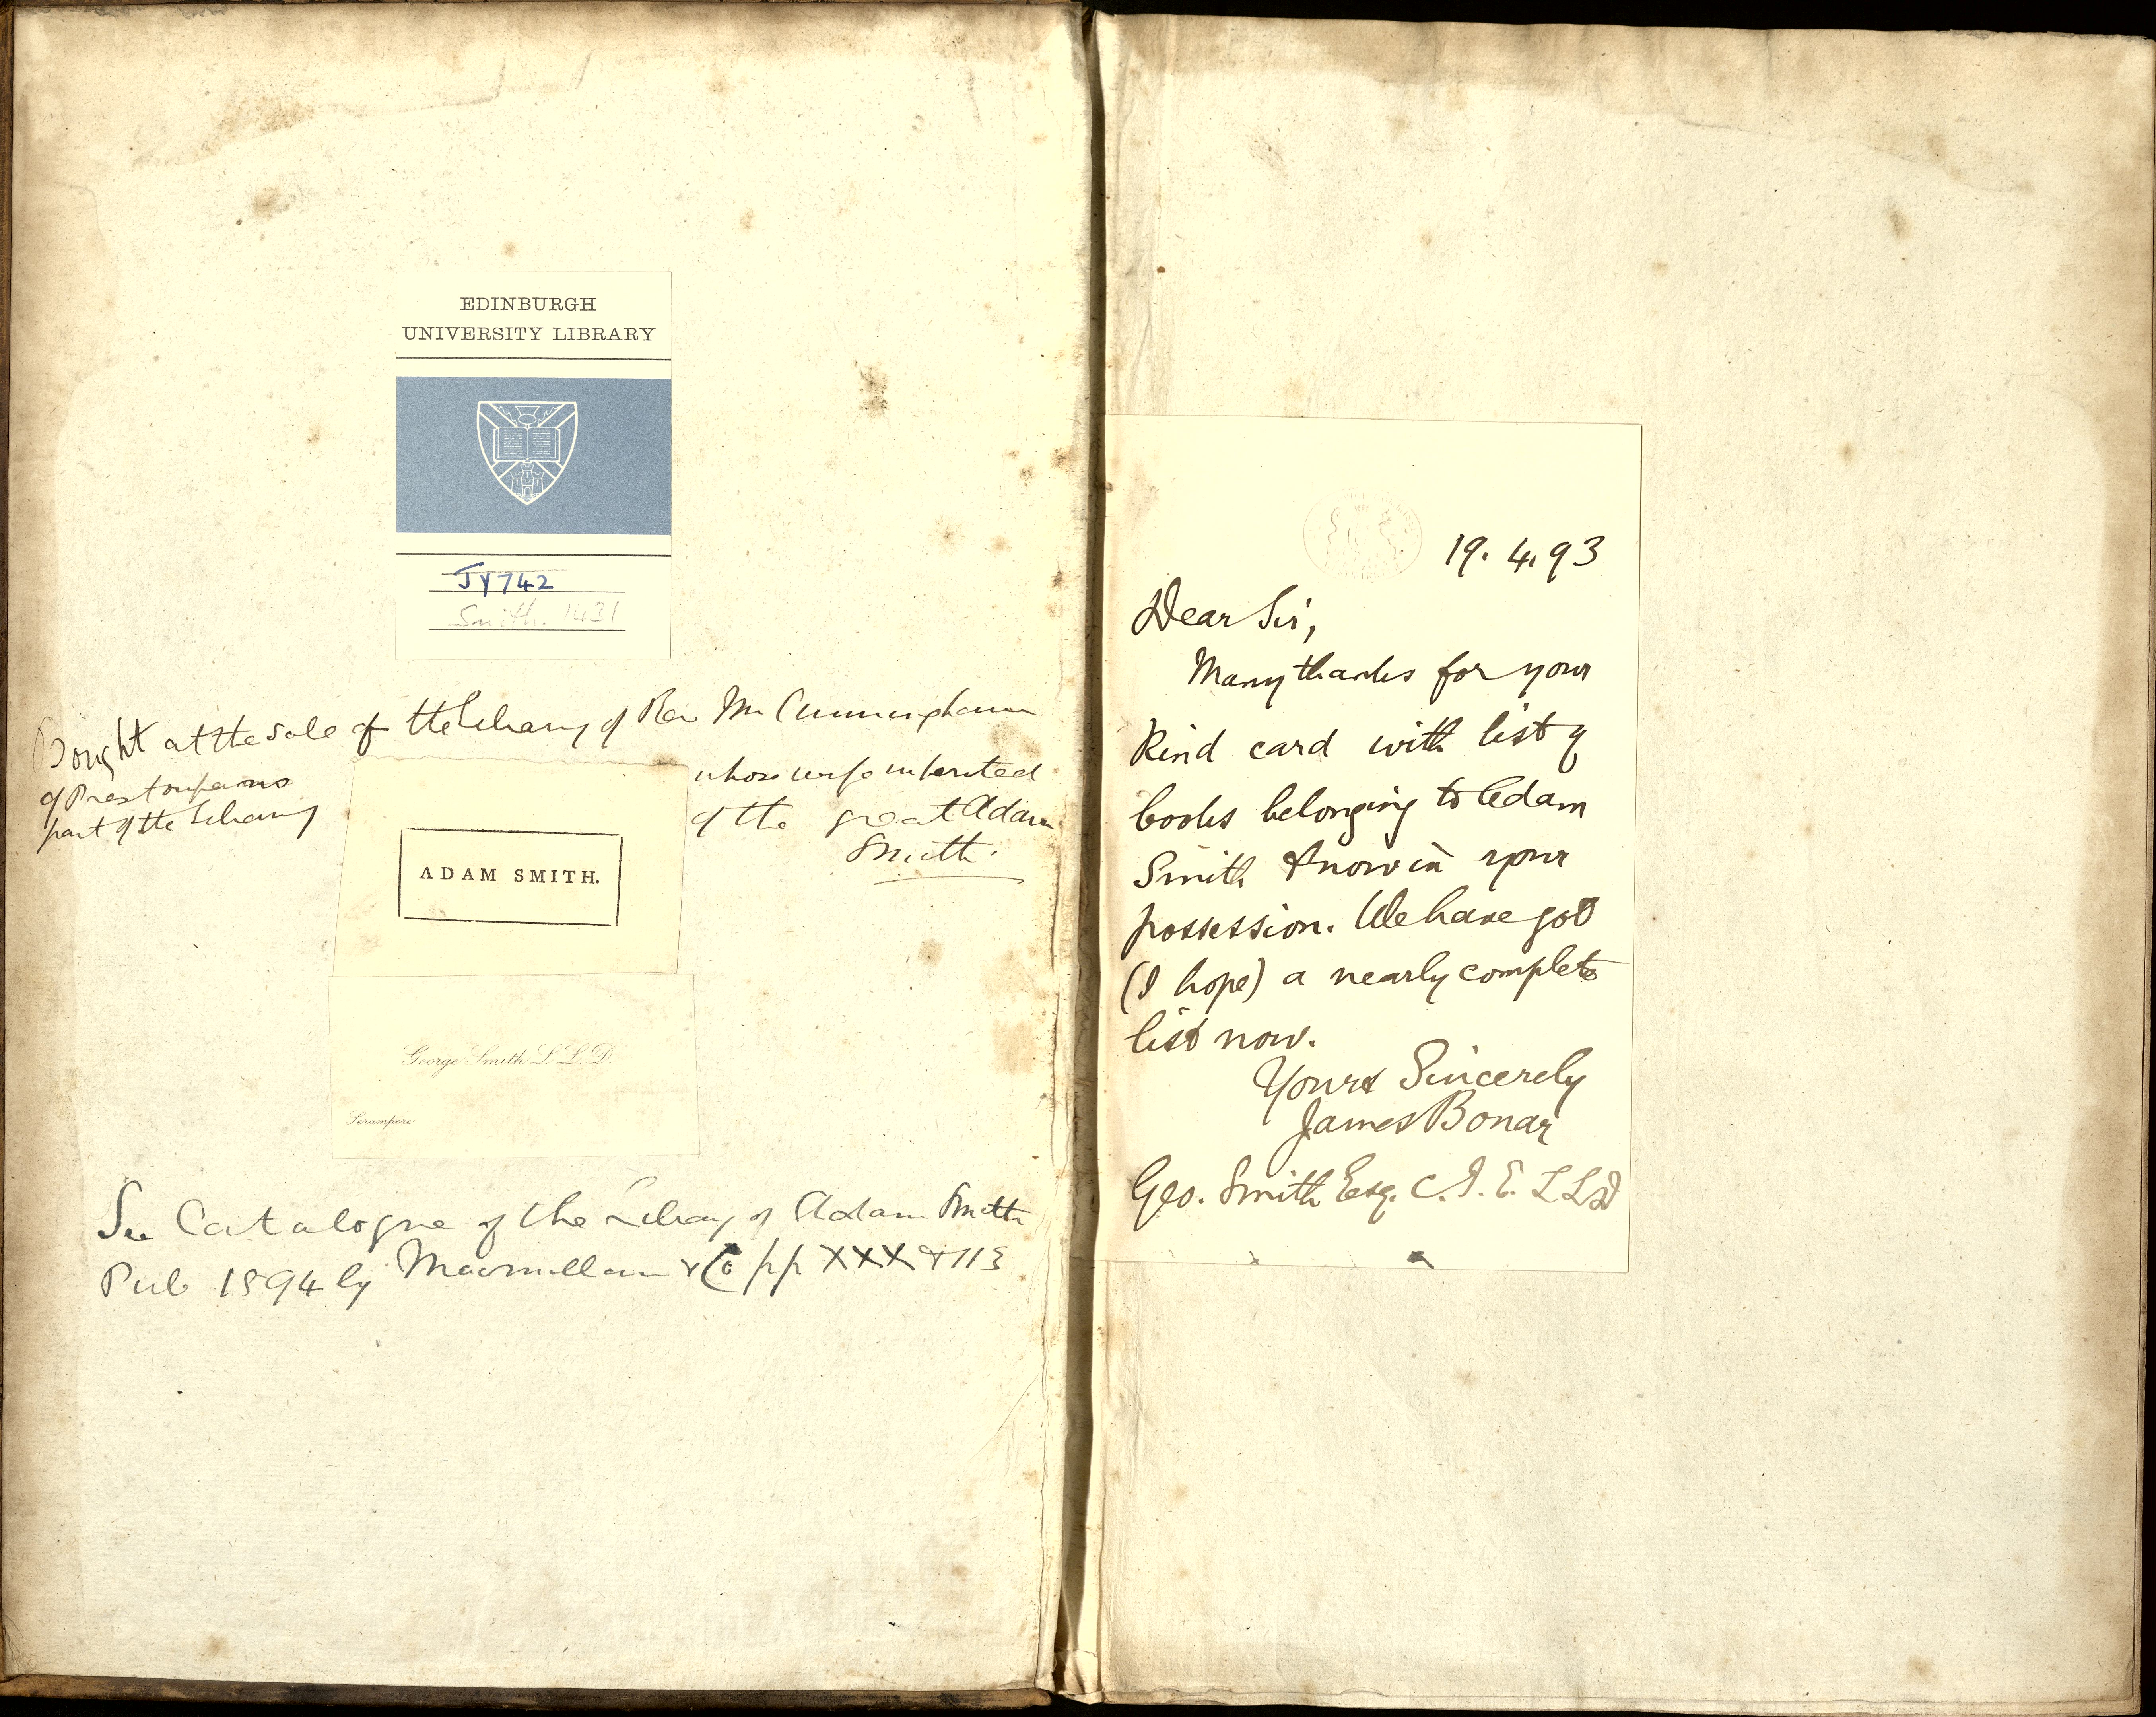 EDINBURGH
UNIVERSITY LIBRARY
JY742
Smith. 1431
Bought at the sale of the Library of Rev Mr Cunningham
of Prestonpans whose wife inherited
part of the Library of the great Adam
Smith.
ADAM SMITH.
George Smith L L. D.
Serampore
See Catalogue of the Library of Adam Smith
Pub 1894 by Macmillan & Co pp XXX & 113
19. 4. 93
Dear Sir,
Many thanks for your
kind card with list of
books belonging to Adam
Smith & now in your
possession. We have got
(I hope) a nearly complete
list now.
Yours Sincerely
James Bonar
Geo. Smith Esq. C. I. E. LLD